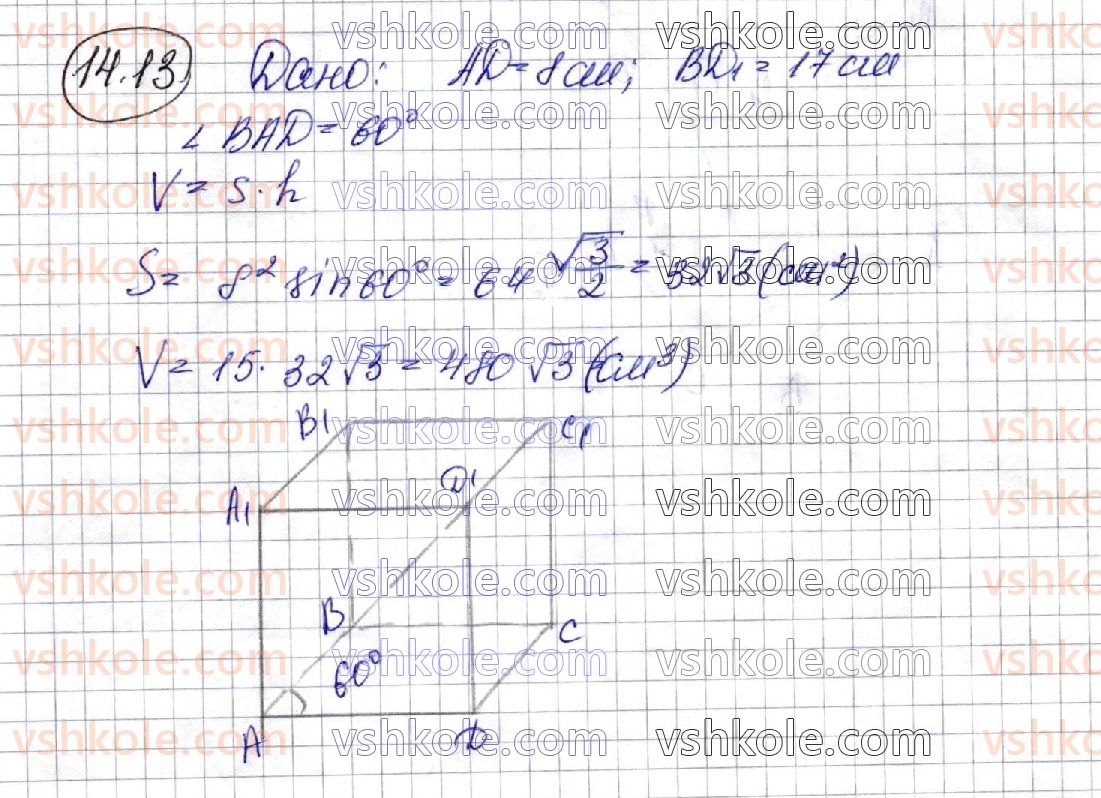 14.13 Дано: AD = 8 см; BD₁ = 17 см
∠ BAD = 60°
V = S · h
S = 8² sin 60° = 64 √3/2 = 32√3 (см²)
V = 15 · 32√3 = 480√3 (см³)
B1 C1
A1 D1
B C
60°
A D
vshkole.com